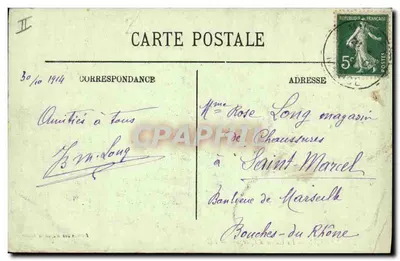 II
CARTE POSTALE
REPUBLIQUE FRANÇAISE
5c
POSTES
30/10 1914
CORRESPONDANCE
ADRESSE
Amitiés à tous
Long
Mme Rose Long magasin
de Chaussures
à Saint Marcel
Banlieue de Marseille
Bouches-du Rhône
CARTE POSTALE